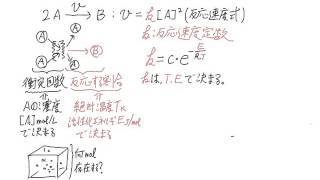 2A →v B : v = k[A]² (反応速度式)
k : 反応速度定数
k = c・e^-E/RT
kは、T、Eで決まる。
A A A A → B
衝突回数 反応する割合
Aの濃度 絶対温度TK
[A]mol/L 活性化エネルギーE J/mol
で決まる で決まる
何mol
存在する?